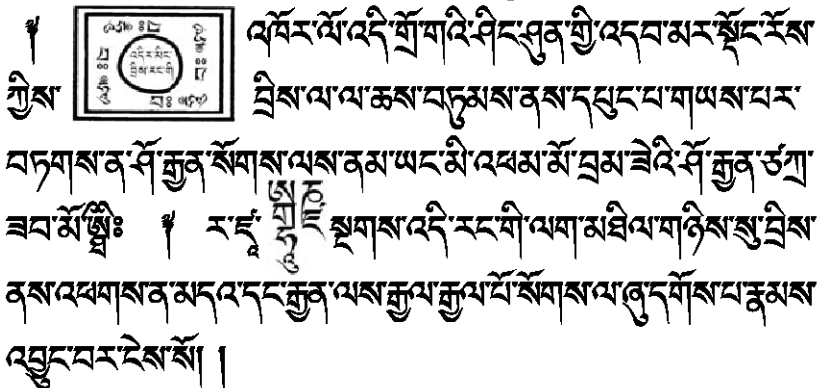 ༈ འཁོར་ལོ་འདི་གྲོ་གའི་ཤིང་ཤུན་གྱི་འདབ་མར་སྡོང་རོས་
ཀྱིས་ བྲིས་ལ་ལ་ཆས་བཏུམས་ནས་དཔུང་པ་གཡས་པར་
འདིར་མིང་
བྲིས་རང་གི
བཏགས་ན་ཤོ་རྒྱན་སོགས་ལས་ནམ་ཡང་མི་འཕམ་མོ་བྲམ་ཟེའི་ཤོ་རྒྱན་ཙཀྲ་
ཟབ་མོ་ ༈ ར་ཛཱ་ སྔགས་འདི་རང་གི་ལག་མཐིལ་གཉིས་སུ་བྲིས་
ནས་འཕགས་ན་མདའ་དང་རྒྱན་ལས་རྒྱལ་རྒྱལ་པོ་སོགས་ལ་ཞུ་དགོས་པ་རྣམས་
འབྱུང་བར་ངེས་སོ། །